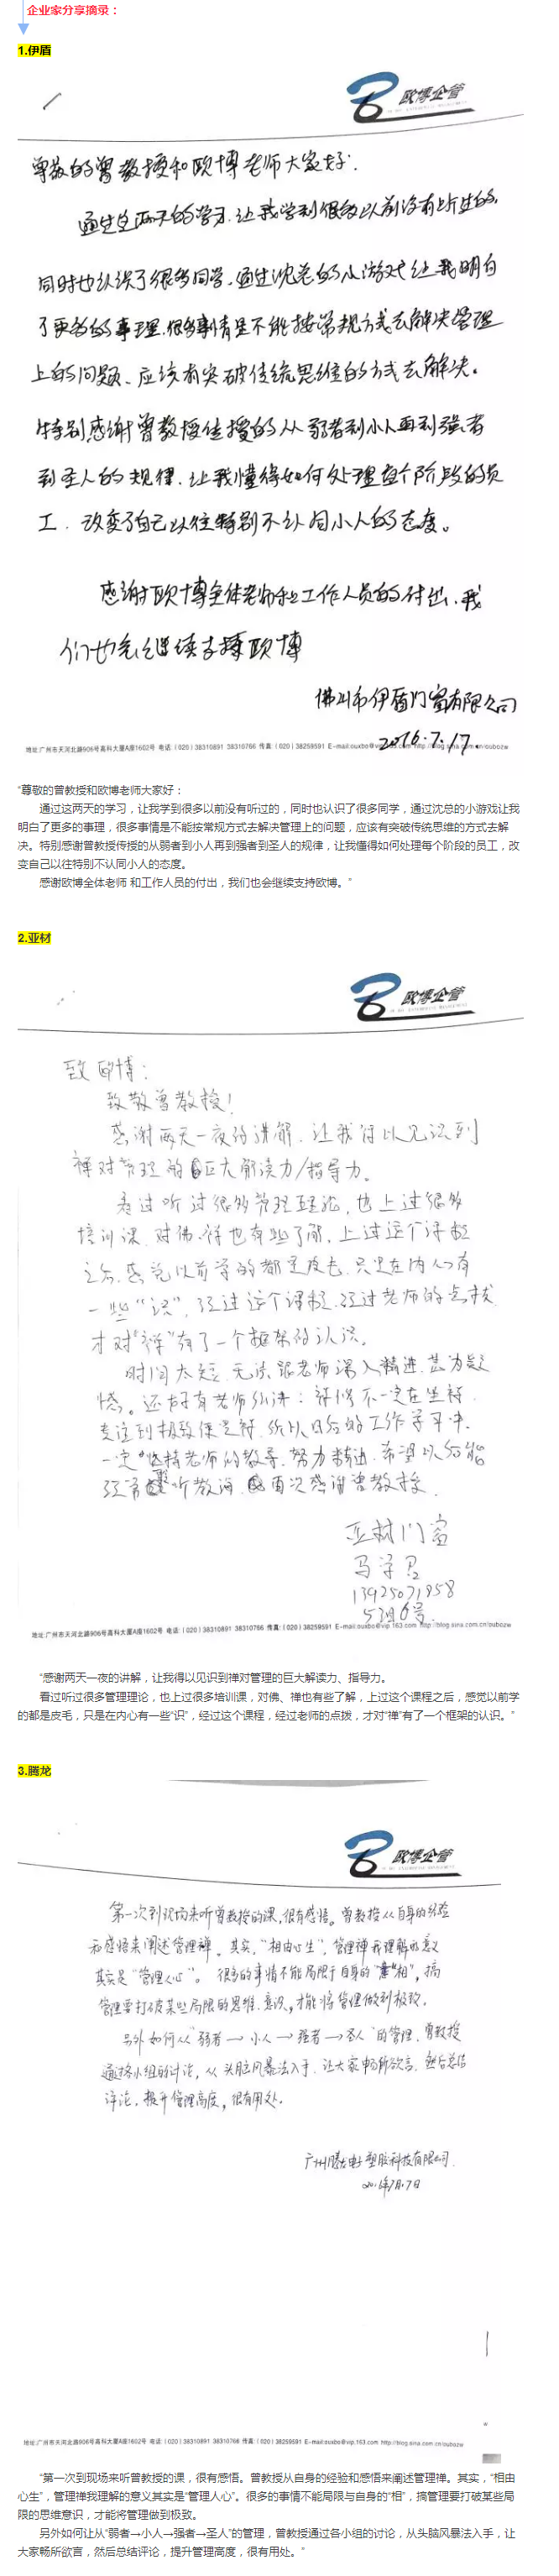 企业家分享摘录：
1.伊盾
欧博企管
尊敬的曾教授和欧博老师大家好：
通过这两天的学习，让我学到很多以前没有听过的，
同时也认识了很多同学，通过沈总的小游戏让我明白
了更多的事理，很多事情是不能按常规方式去解决管理
上的问题、应该有突破传统思维的方式去解决。
特别感谢曾教授传授的从弱者到小人再到强者
到圣人的规律，让我懂得如何处理每个阶段的员
工，改变了自己以往特别不认同小人的态度。
感谢欧博全体老师和工作人员的付出，我
们也会继续支持欧博
佛山市伊盾门窗有限公司
2016.7.17.
地址:广州市天河北路906号高科大厦A座1602号 电话:（020）38310891 38310766 传真:（020）38259591 E-mail:ouxbo@vip.163.com http://blog.sina.com.cn/oubozw
“尊敬的曾教授和欧博老师大家好：
通过这两天的学习，让我学到很多以前没有听过的，同时也认识了很多同学，通过沈总的小游戏让我
明白了更多的事理，很多事情是不能按常规方式去解决管理上的问题，应该有突破传统思维的方式去解
决。特别感谢曾教授传授的从弱者到小人再到强者到圣人的规律，让我懂得如何处理每个阶段的员工，改
变自己以往特别不认同小人的态度。
感谢欧博全体老师 和工作人员的付出，我们也会继续支持欧博。”
2.亚材
欧博企管
致欧博：
致敬曾教授！
感谢两天一夜的讲解，让我得以见识到
禅对管理的巨大解读力/指导力。
看过听过很多管理理论，也上过很多
培训课，对佛、禅也有些了解，上过这个课程
之后，感觉以前学的都是皮毛，只是在内心有
一些“识”，经过这个课程，经过老师的点拨，
才对“禅”有了一个框架的认识。
时间太短，无法跟老师深入精进，甚为遗
憾。还好有老师所讲：禅修不一定在坐禅，
专注到极致便是禅，所以日后的工作学习中，
一定坚持老师的教导，努力精进，希望以后能
经常聆听教诲，再次感谢曾教授。
亚材门窗
13925071958
5组6号
地址:广州市天河北路906号高科大厦A座1602号 电话:（020）38310891 38310766 传真:（020）38259591 E-mail:ouxbo@vip.163.com http://blog.sina.com.cn/oubozw
“感谢两天一夜的讲解，让我得以见识到禅对管理的巨大解读力、指导力。
看过听过很多管理理论，也上过很多培训课，对佛、禅也有些了解，上过这个课程之后，感觉以前学
的都是皮毛，只是在内心有一些“识”，经过这个课程，经过老师的点拨，才对“禅”有了一个框架的认识。”
3.腾龙
欧博企管
第一次到现场来听曾教授的课，很有感悟。曾教授从自身的经验
和感悟来阐述管理禅。其实，“相由心生”，管理禅我理解的意义
其实是“管理人心”。很多的事情不能局限于自身的“相”，搞
管理要打破某些局限的思维、意识，才能将管理做到极致。
另外如何从“弱者→小人→强者→圣人”的管理，曾教授
通过各小组的讨论，从头脑风暴法入手，让大家畅所欲言，然后总结
评论，提升管理高度，很有用处。
广州腾龙电子塑胶科技有限公司
2016年7月17日
地址:广州市天河北路906号高科大厦A座1602号 电话:（020）38310891 38310766 传真:（020）38259591 E-mail:ouxbo@vip.163.com http://blog.sina.com.cn/oubozw
“第一次到现场来听曾教授的课，很有感悟。曾教授从自身的经验和感悟来阐述管理禅。其实，“相由
心生”，管理禅我理解的意义其实是“管理人心”。很多的事情不能局限与自身的“相”，搞管理要打破某些局
限的思维意识，才能将管理做到极致。
另外如何让从“弱者→小人→强者→圣人”的管理，曾教授通过各小组的讨论，从头脑风暴法入手，让
大家畅所欲言，然后总结评论，提升管理高度，很有用处。”